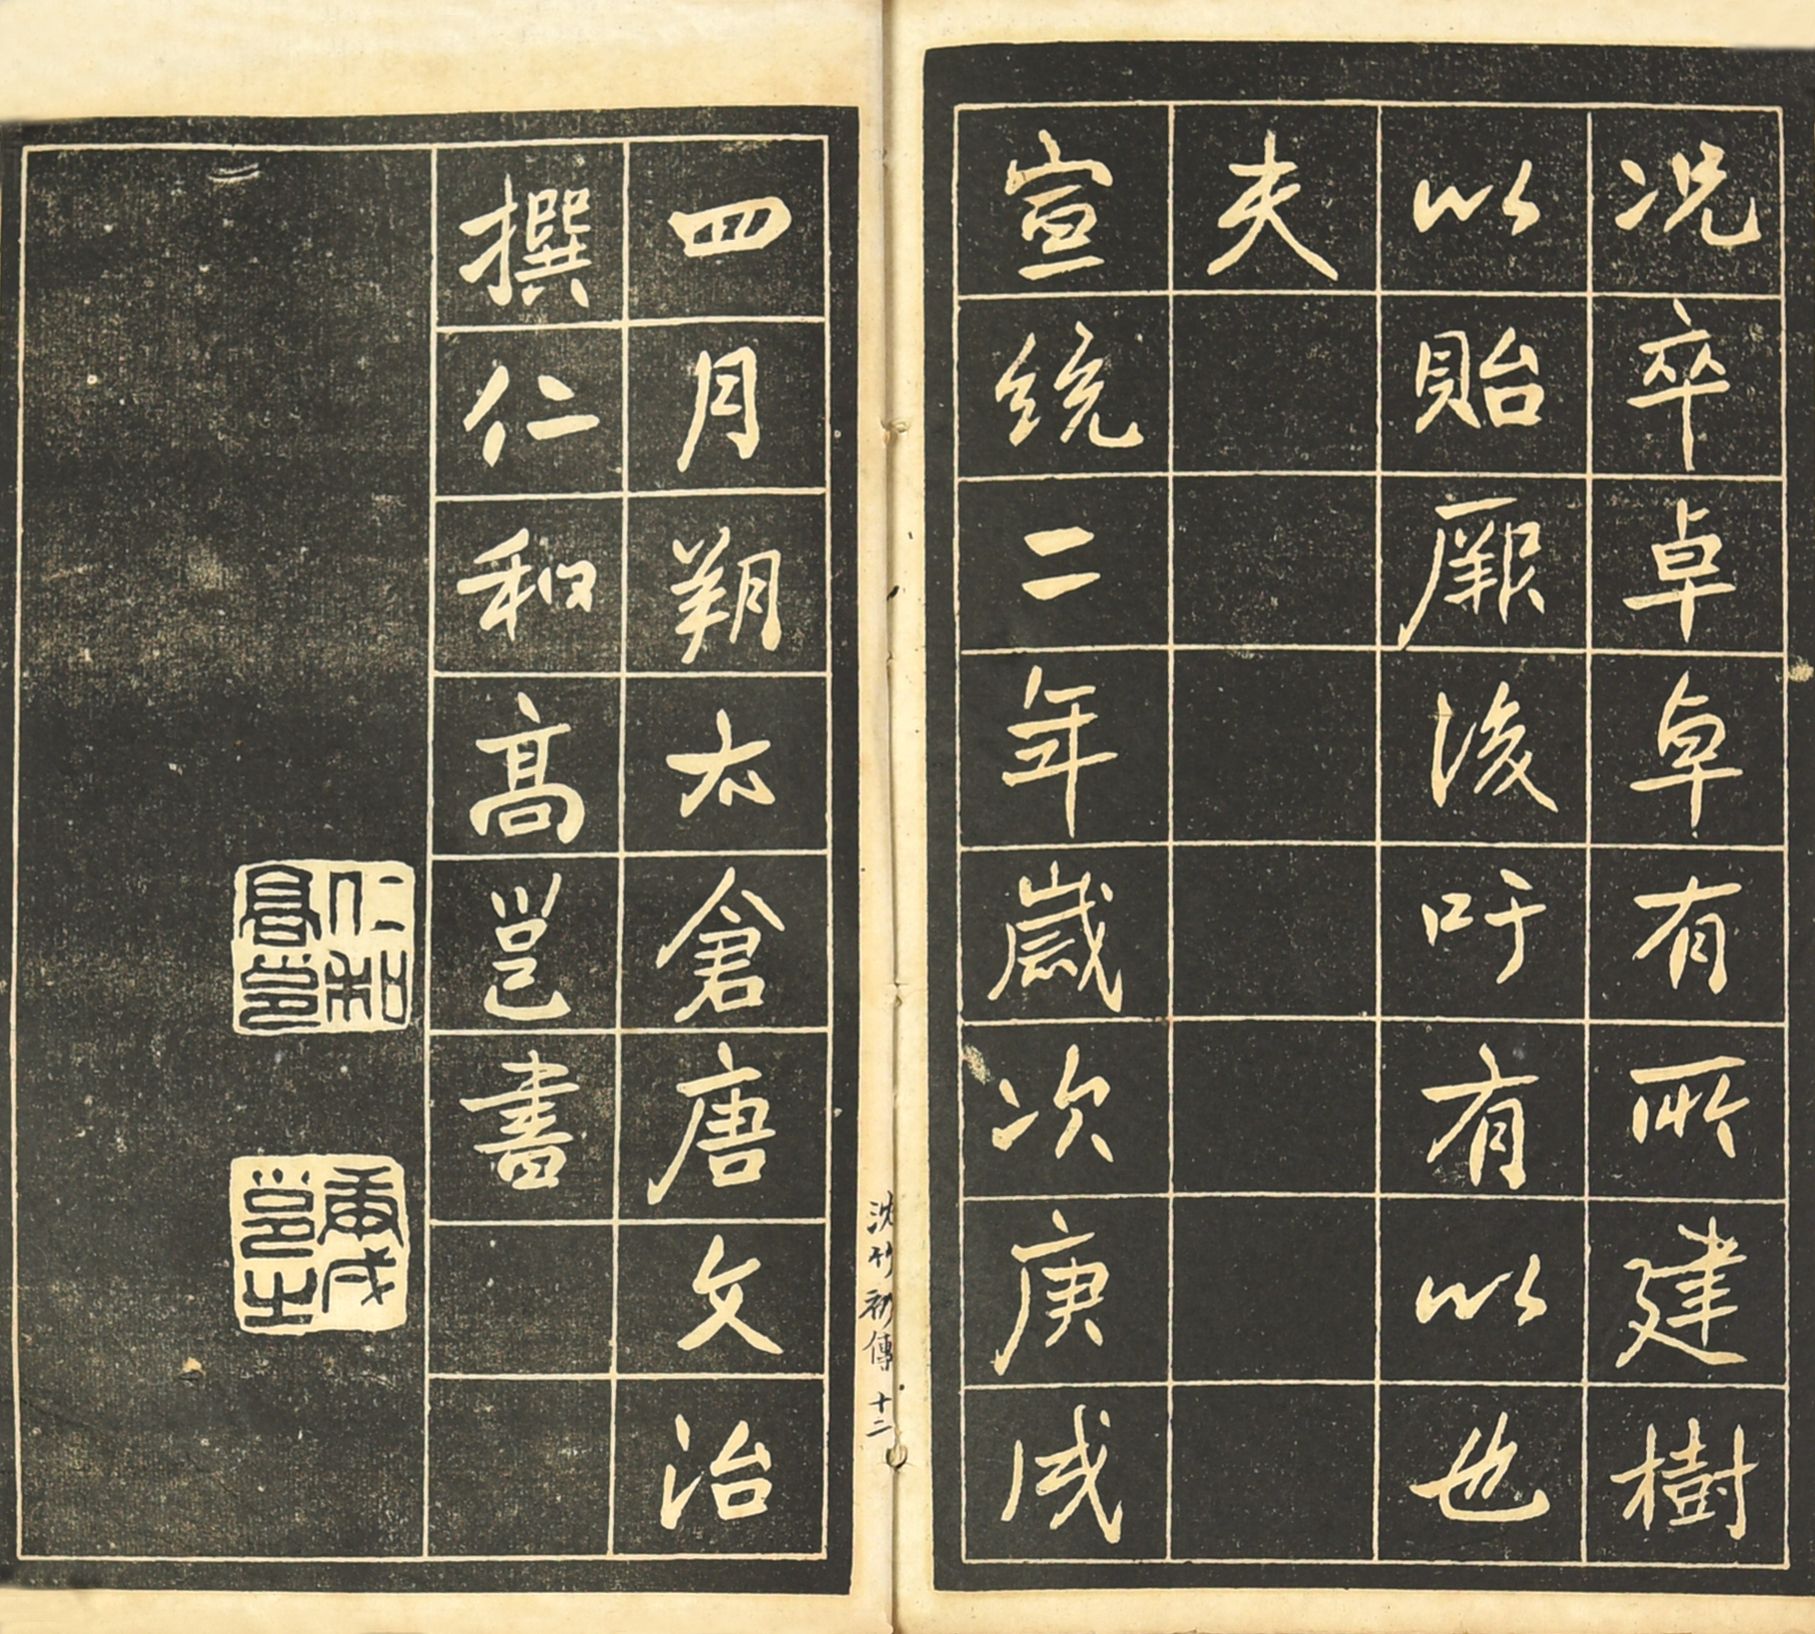 况卒卓卓有所建樹
以貽厥後吁有以也
夫
宣統二年歲次庚戌
四月朔太倉唐文治
撰仁和高邕書
仁和高邕
庚戌邕之
沈竹礽傳 十二